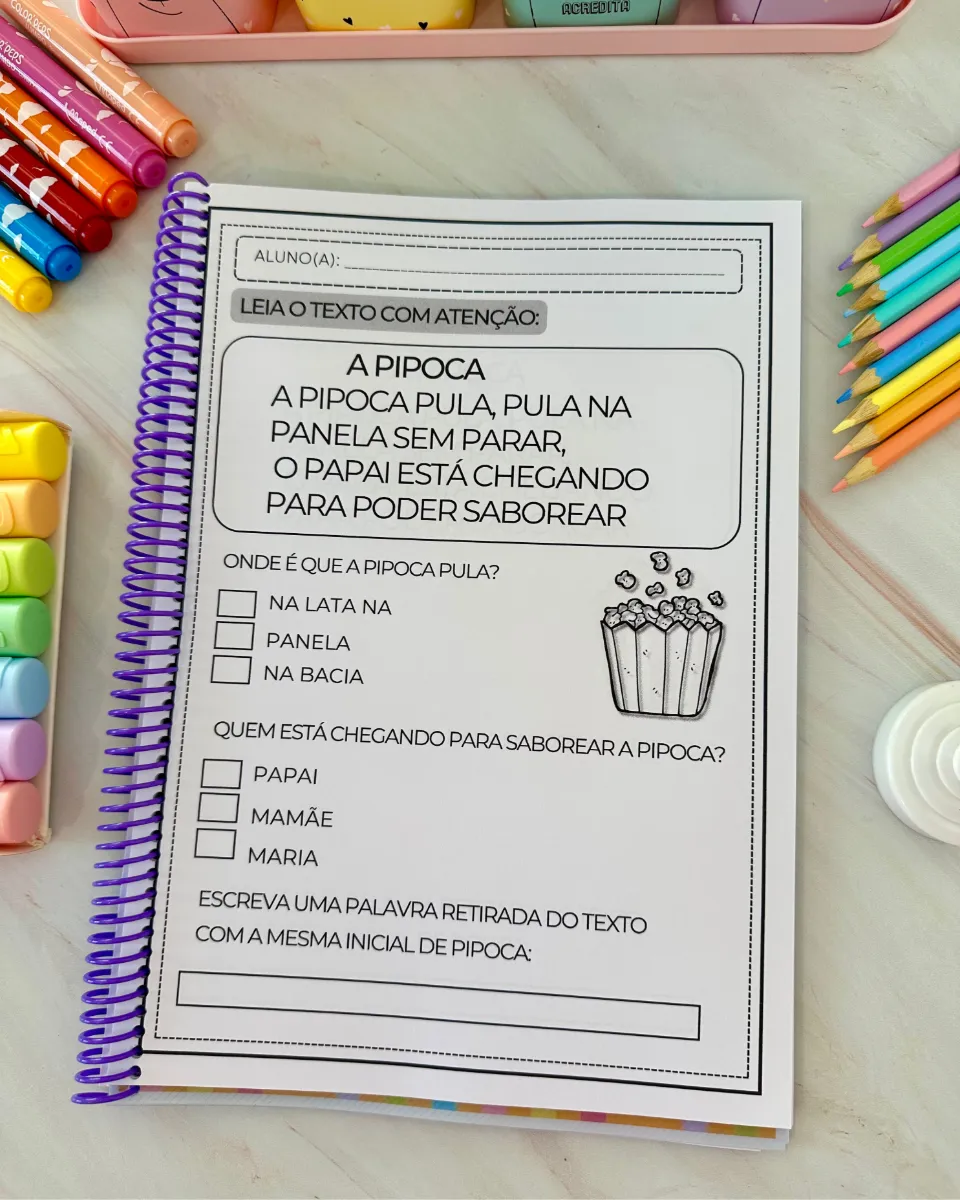 ACREDITA
COLOR'PEPS
ALUNO(A):
LEIA O TEXTO COM ATENÇÃO:
A PIPOCA
A PIPOCA PULA, PULA NA
PANELA SEM PARAR,
O PAPAI ESTÁ CHEGANDO
PARA PODER SABOREAR
ONDE É QUE A PIPOCA PULA?
NA LATA NA
PANELA
NA BACIA
QUEM ESTÁ CHEGANDO PARA SABOREAR A PIPOCA?
PAPAI
MAMÃE
MARIA
ESCREVA UMA PALAVRA RETIRADA DO TEXTO
COM A MESMA INICIAL DE PIPOCA: